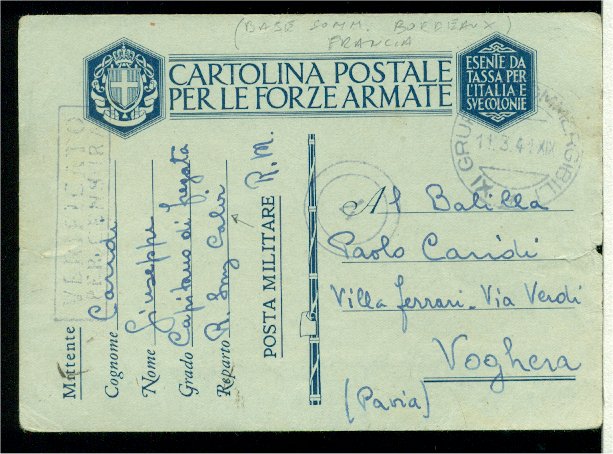 (BASE SOMM. BORDEAUX)
FRANCIA
CARTOLINA POSTALE
PER LE FORZE ARMATE
ESENTE DA
TASSA PER
L'ITALIA E
SUE COLONIE
XI GRUPPO SOMMERGIBILI
11.3.41 XIX
VERIFICATO
PER CENSURA
Mittente
Cognome Caridi
Nome Giuseppe
Grado Capitano di fregata
Reparto R. Smg Calvi
POSTA MILITARE R.M.
Al Balilla
Paolo Caridi
Villa Ferrari - Via Verdi
Voghera
(Pavia)